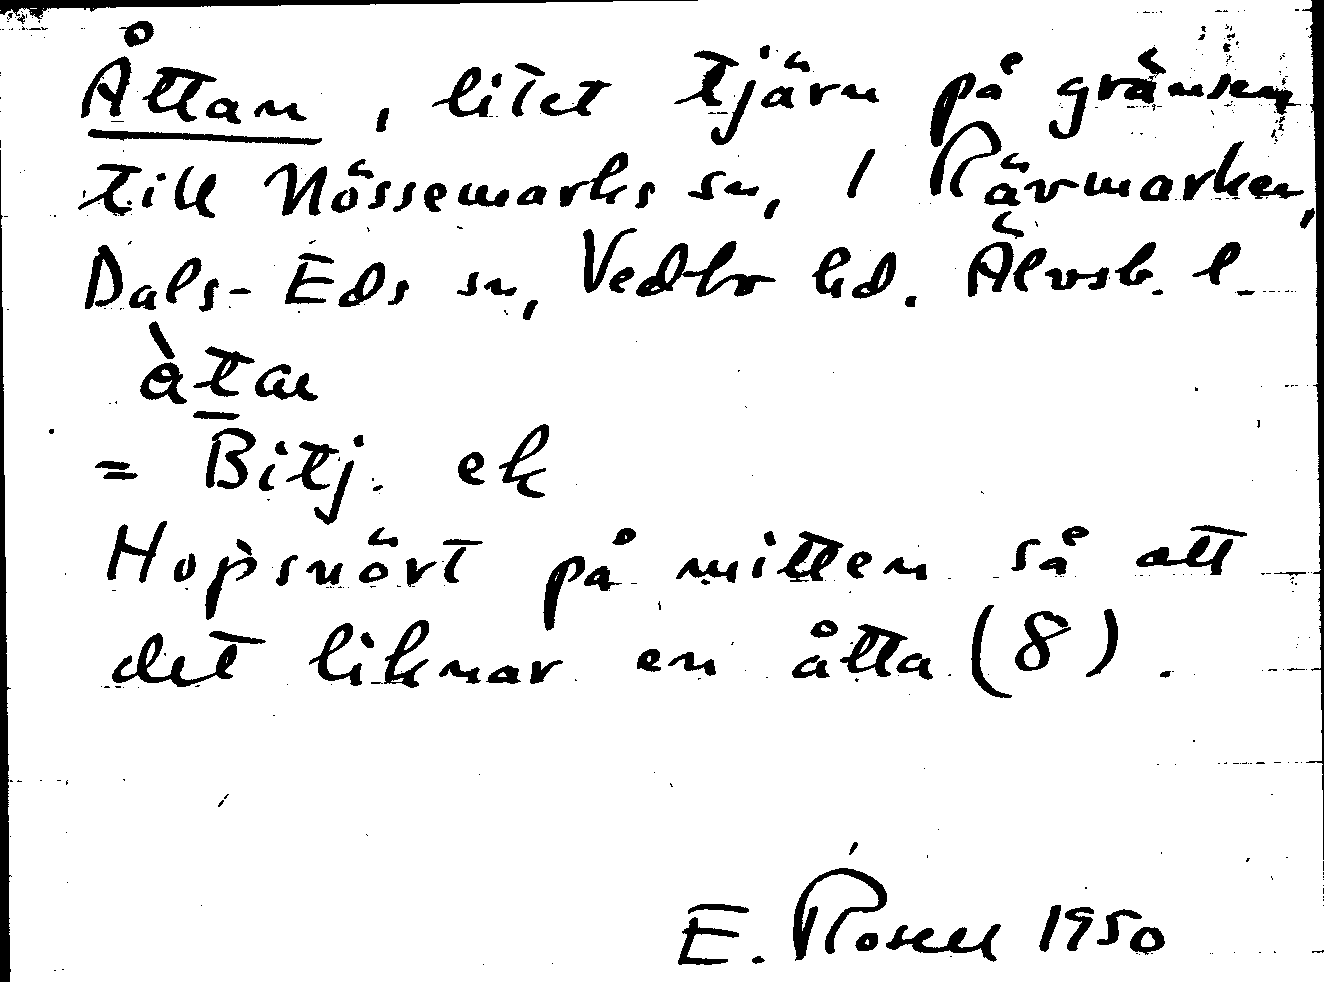 Åttan, litet tjärn på gränsen
till Nössemarks sn, 1 Rävmarken,
Dals-Eds sn, Vedbo hd. Älvsb. l.
àtan
= Bitj. ek
Hopsnört på mitten så att
det liknar en åtta (8).
E. Rosell 1950